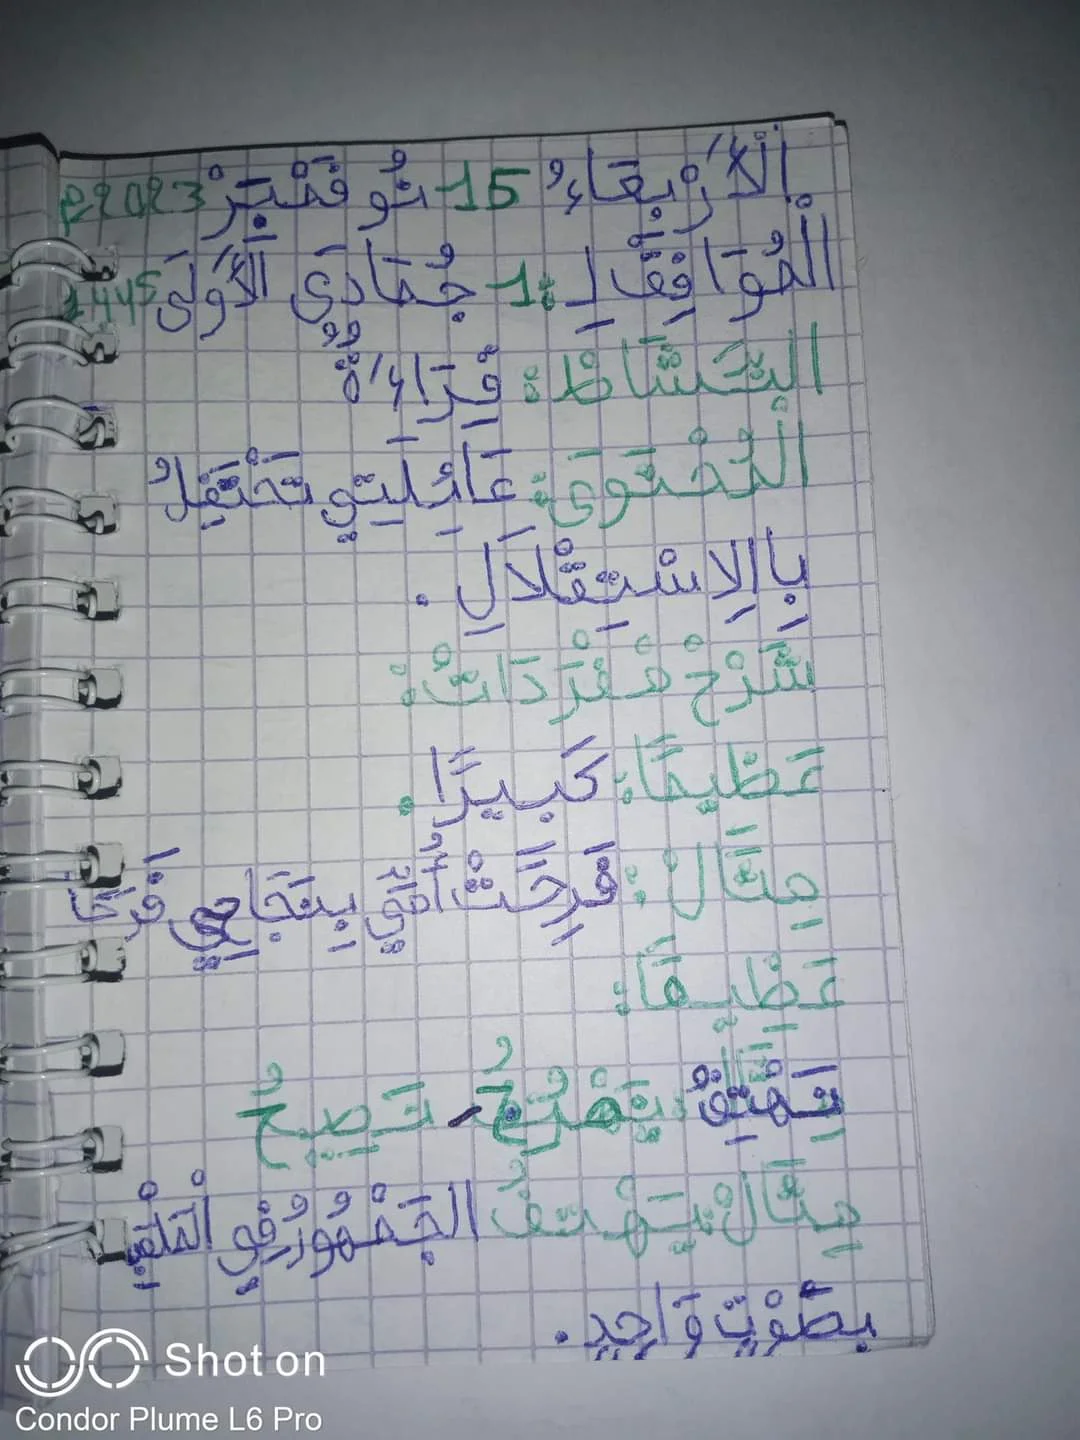 الْأَرْبِعَاءُ 15 نُوفَمْبَرْ 2023م
الْمُوَافِقُ لِـ: 1 جُمَادَى الْأُولَى 1445
النَّشَاطْ: قِرَاءَةٌ
الْمُحْتَوَى: عَائِلَتِي تَحْتَفِلُ
بِالِاسْتِقْلَالِ.
شَرْحْ مُفْرَدَاتْ:
عَظِيمًا: كَبِيرًا.
مِثَالْ: فَرِحَتْ أُمِّي بِنَجَاحِي فَرَحًا
عَظِيمًا:
يَهْتِفُ: يَصْرُخُ - يَصِيحُ
مِثَالْ: يَهْتِفُ الْجُمْهُورُ فِي الْمَلْعَبِ
بِصَوْتٍ وَاحِدٍ.
Shot on
Condor Plume L6 Pro